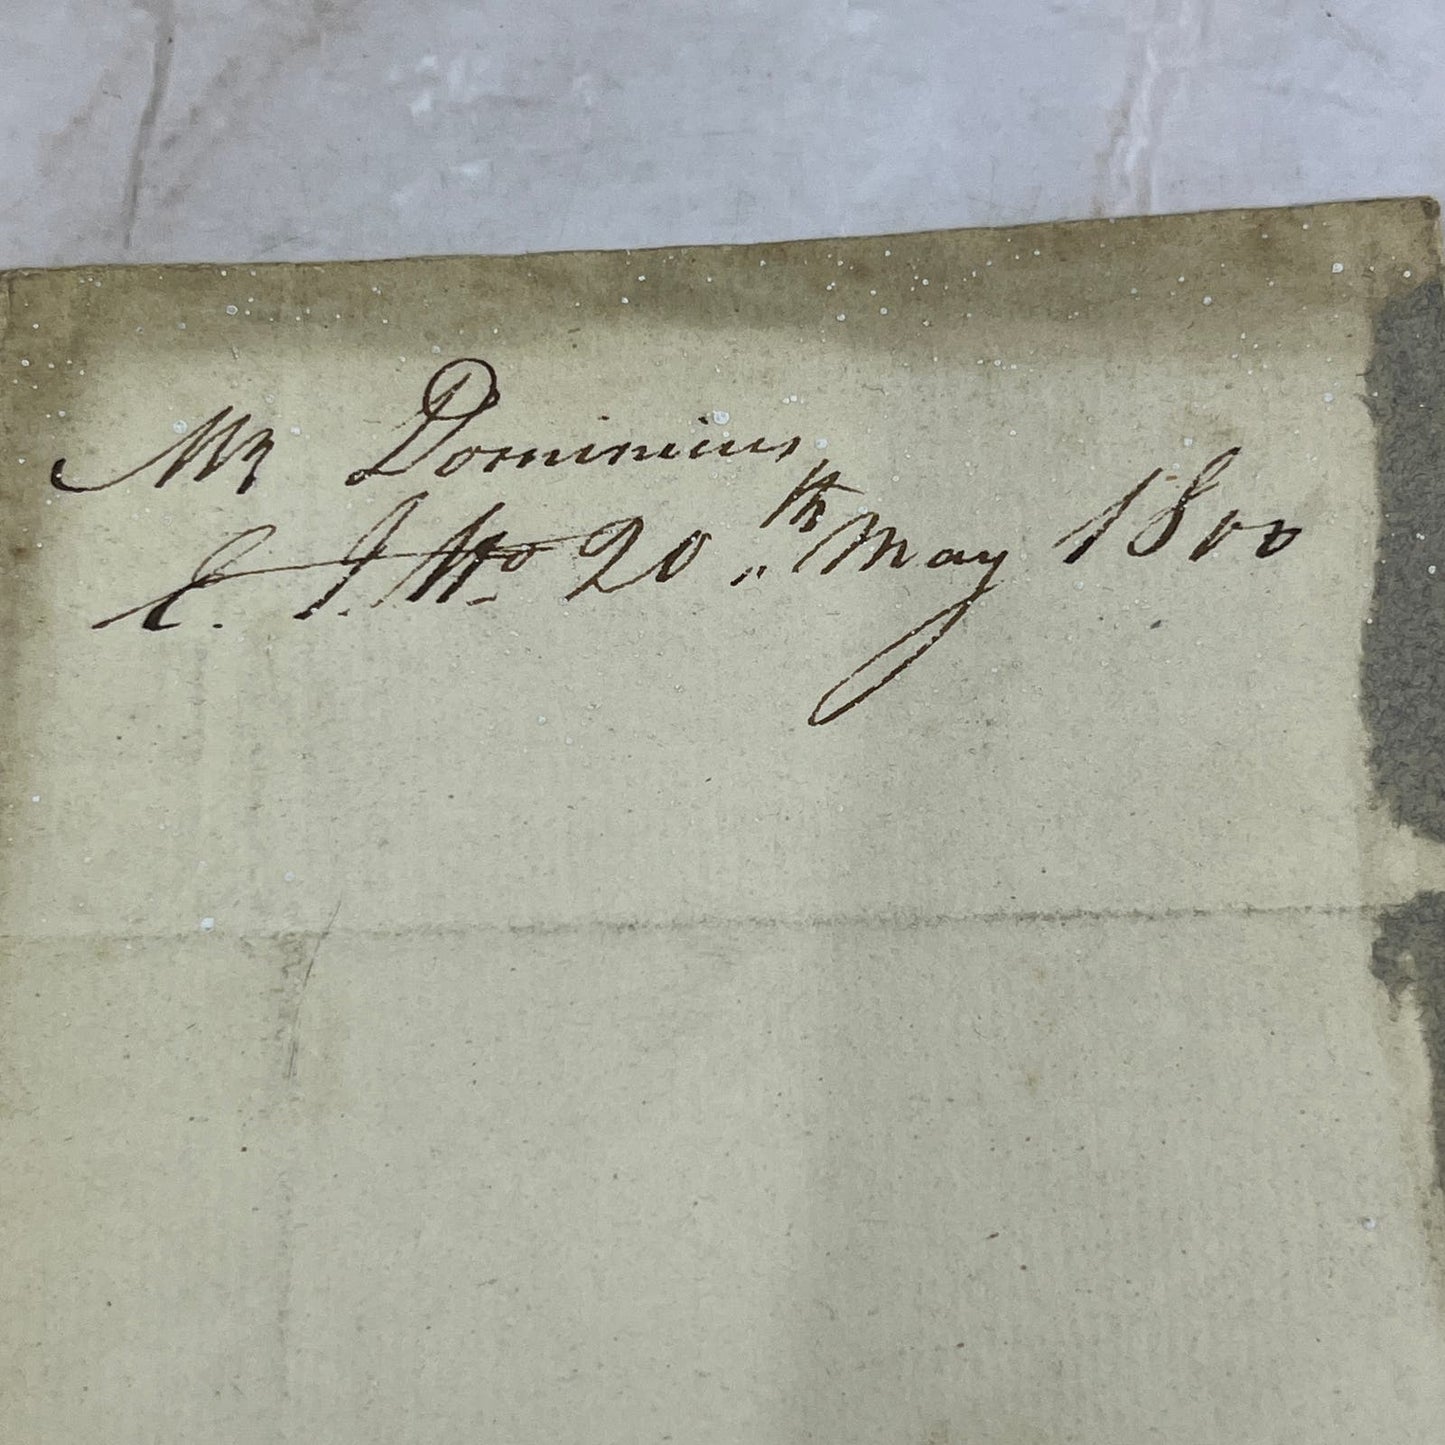 Mr Dominicus
E. I. Ho 20th May 1800